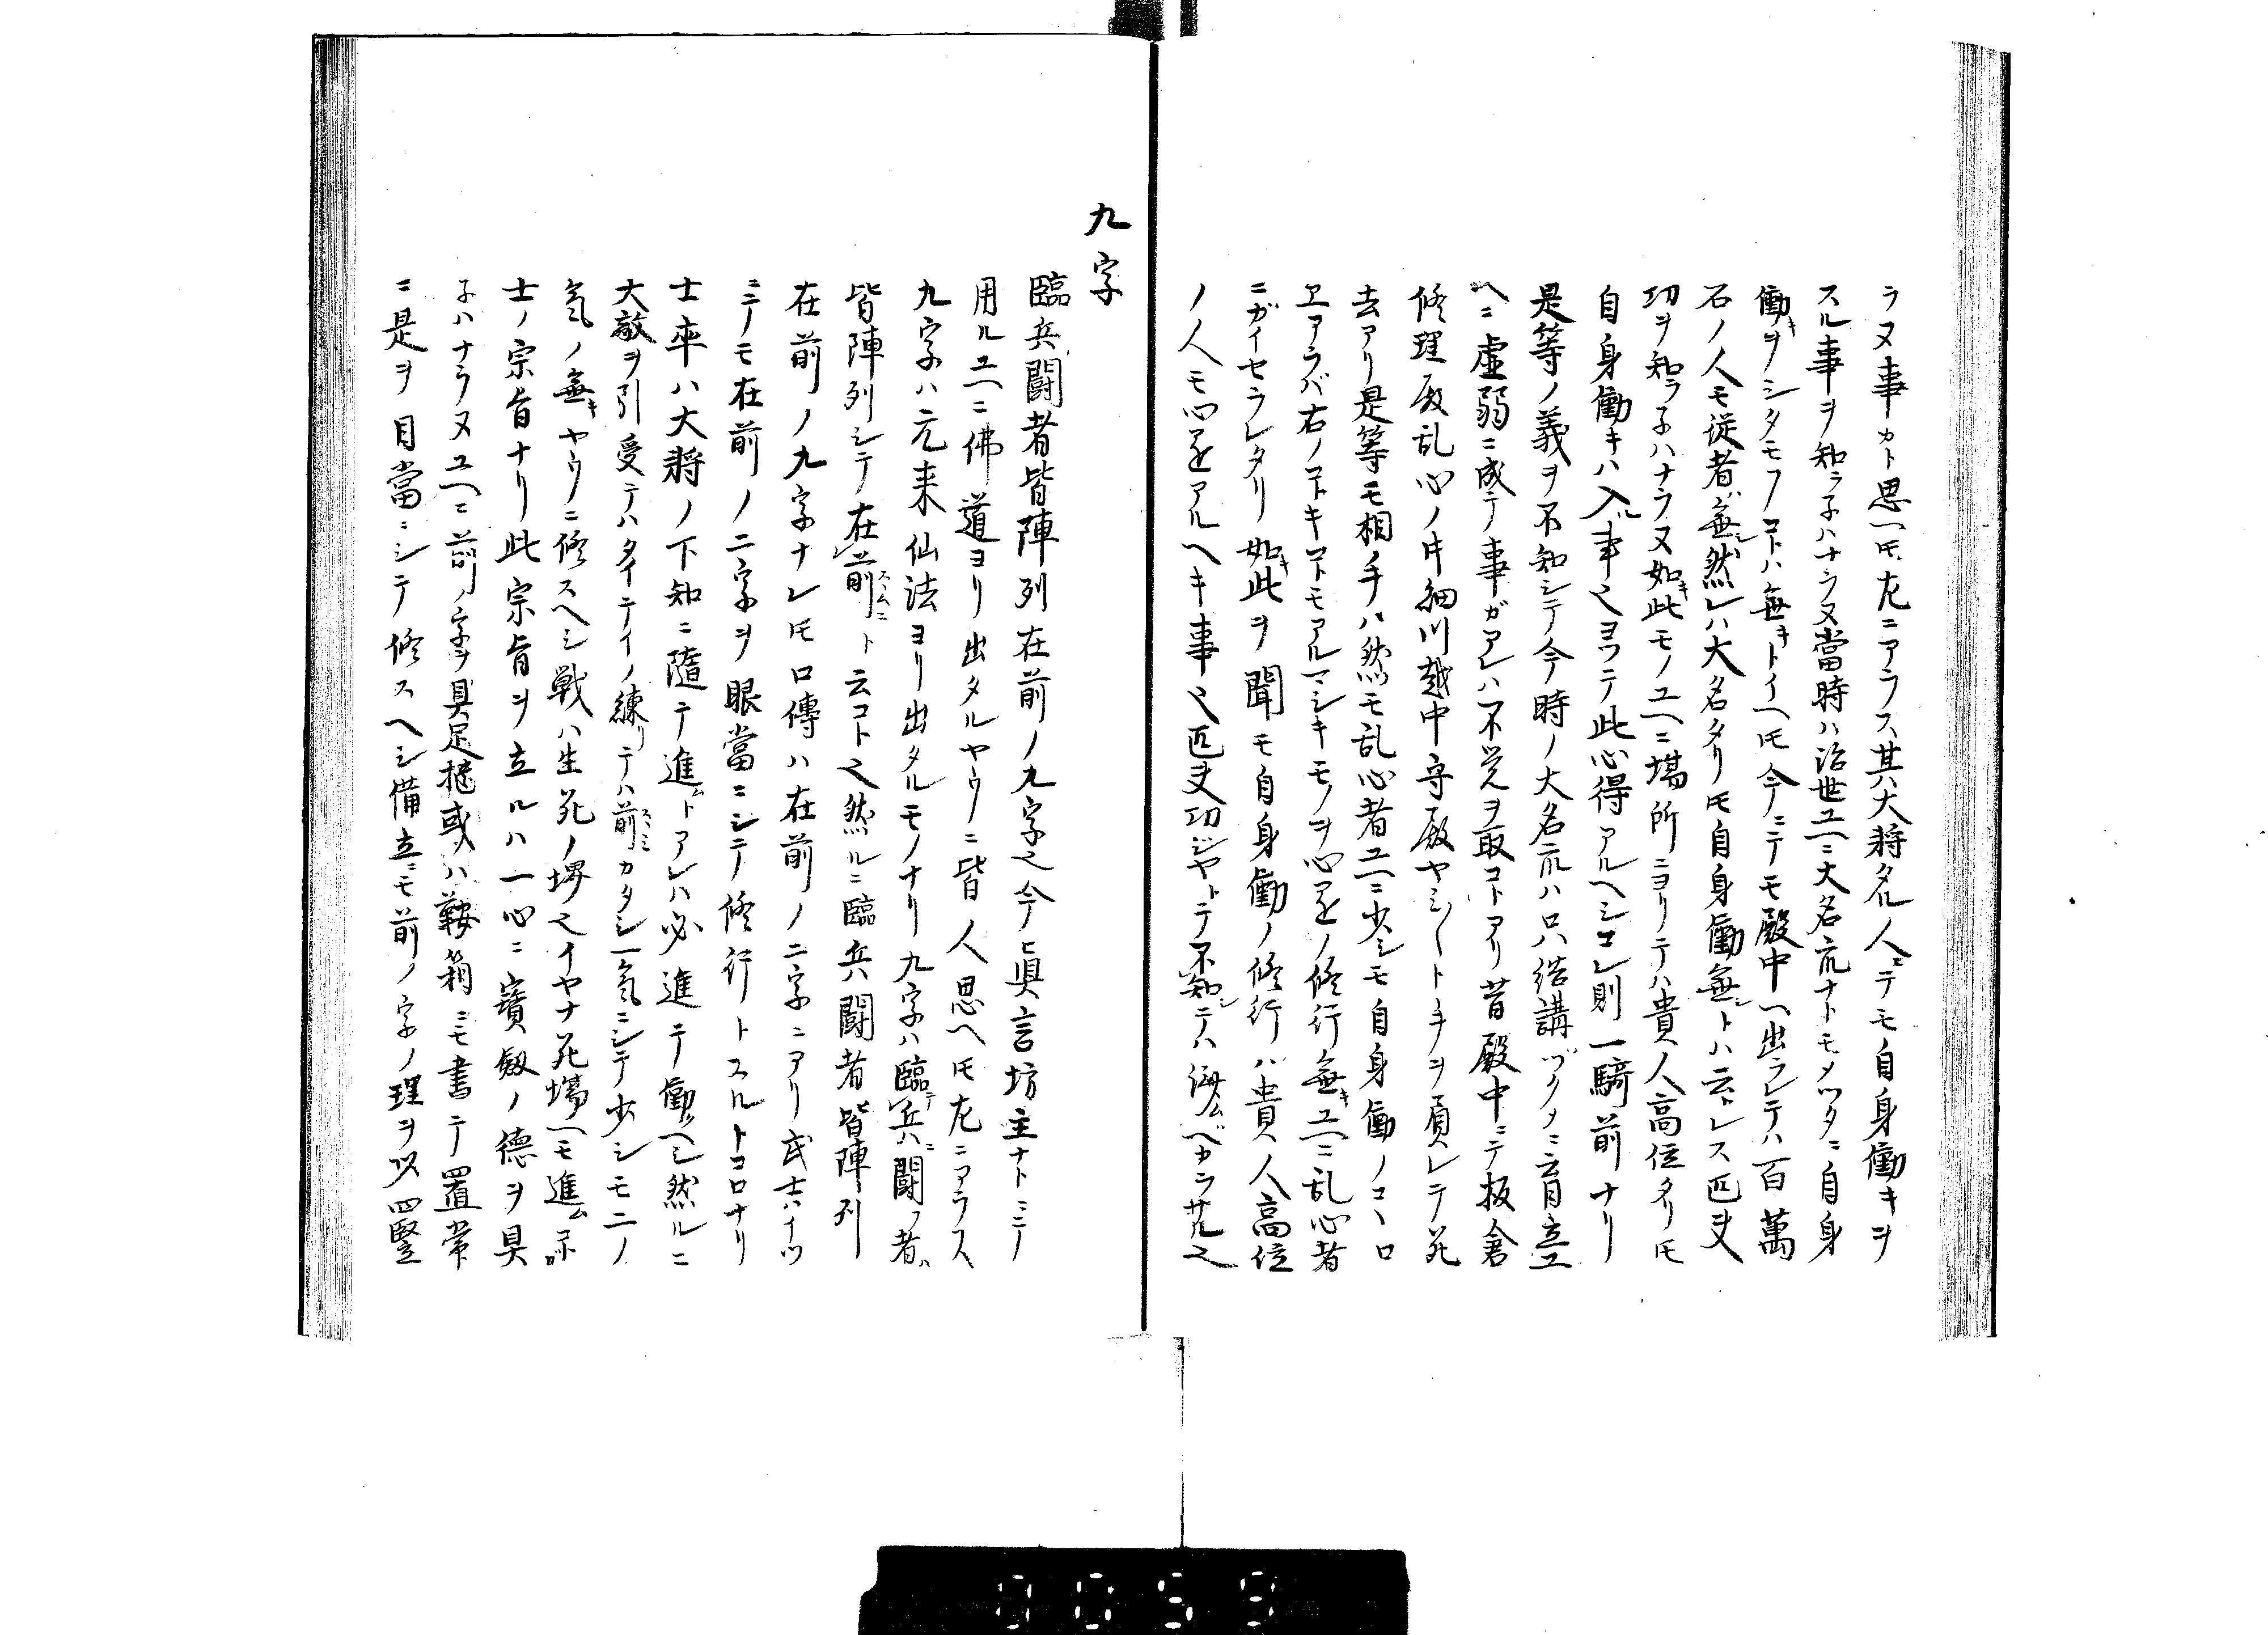 ラヌ事カト思ヘ𪜈左ニアラス其大将タル人ニテモ自身働キヲ
スル事ヲ知ラ子ハナラヌ當時ハ治世ユヘニ大名衆ナトモメツタニ自身
働キヲシタモフコトハ無キトイヘ𪜈今ニテモ殿中ヘ出ラレテハ百萬
石ノ人モ従者無シ然レハ大名タリ𪜈自身働無シトハ云レス匹夫
功ヲ知ラ子ハナラヌ如此キモノユヘニ場所ニヨリテハ貴人高位タリ𪜈
自身働キハ入ル事也ヨツテ此心得アルヘシコレ則一騎前ナリ
是等ノ義ヲ不知シテ今時ノ大名衆ハ只結講ヅクメニ育立ユ
ヘニ虚弱ニ成テ事ガアレハ不覚ヲ取コトアリ昔殿中ニテ板倉
修理殿乱心ノ片細川越中守殿ヤミ〱ト手ヲ負レテ死
去アリ是等モ相手ハ然モ乱心者ユヘニ少シモ自身働ノコヽロ
ヱアラバ右ノコトキコトモアルマシキモノヲ心得ノ修行無キユヘニ乱心者
ニガイセラレタリ如此キヲ聞モ自身働ノ修行ハ貴人高位
ノ人モ心得アルヘキ事也匹夫功ジヤトテ不知シテハ済ムベカラサル也
九字
臨兵闘者皆陣列在前ノ九字也今ヒ眞言坊主ナトニミテ
用ルユヘニ佛道ヨリ出タルヤウニ皆人思ヘ𪜈左ニアラス
九字ハ元来仙法ヨリ出タルモノナリ九字ハ臨テ兵ニ闘フ者ハ
皆陣列シテ在前スヽムニト云コト也然ルニ臨兵闘者皆陣列
在前ノ九字ナレ𪜈口傳ハ在前ノ二字ニアリ武士ハイツ
ニテモ在前ノ二字ヲ眼當ニシテ修行トスルトコロナリ
士卒ハ大将ノ下知ニ隨テ進ムトアレハ必進テ働クヘシ然ルニ
大敵ヲ引受テハタイテイノ練リテハ前スヽミカタシ一氣ニシテ少シモ二ノ
氣ノ無キヤウニ修スヘシ戦ハ生死ノ堺也イヤナ死場ヘモ進ムガ
士ノ宗旨ナリ此宗旨ヲ立ルハ一心ニ寳劔ノ徳ヲ具
子ハナラヌユヘニ前ノ字ヲ具足櫃或ハ鞍箱ニモ書テ置常
ニ是ヲ目當ニシテ修スヘシ備立ニモ前ノ字ノ理ヲ以四竪
0059